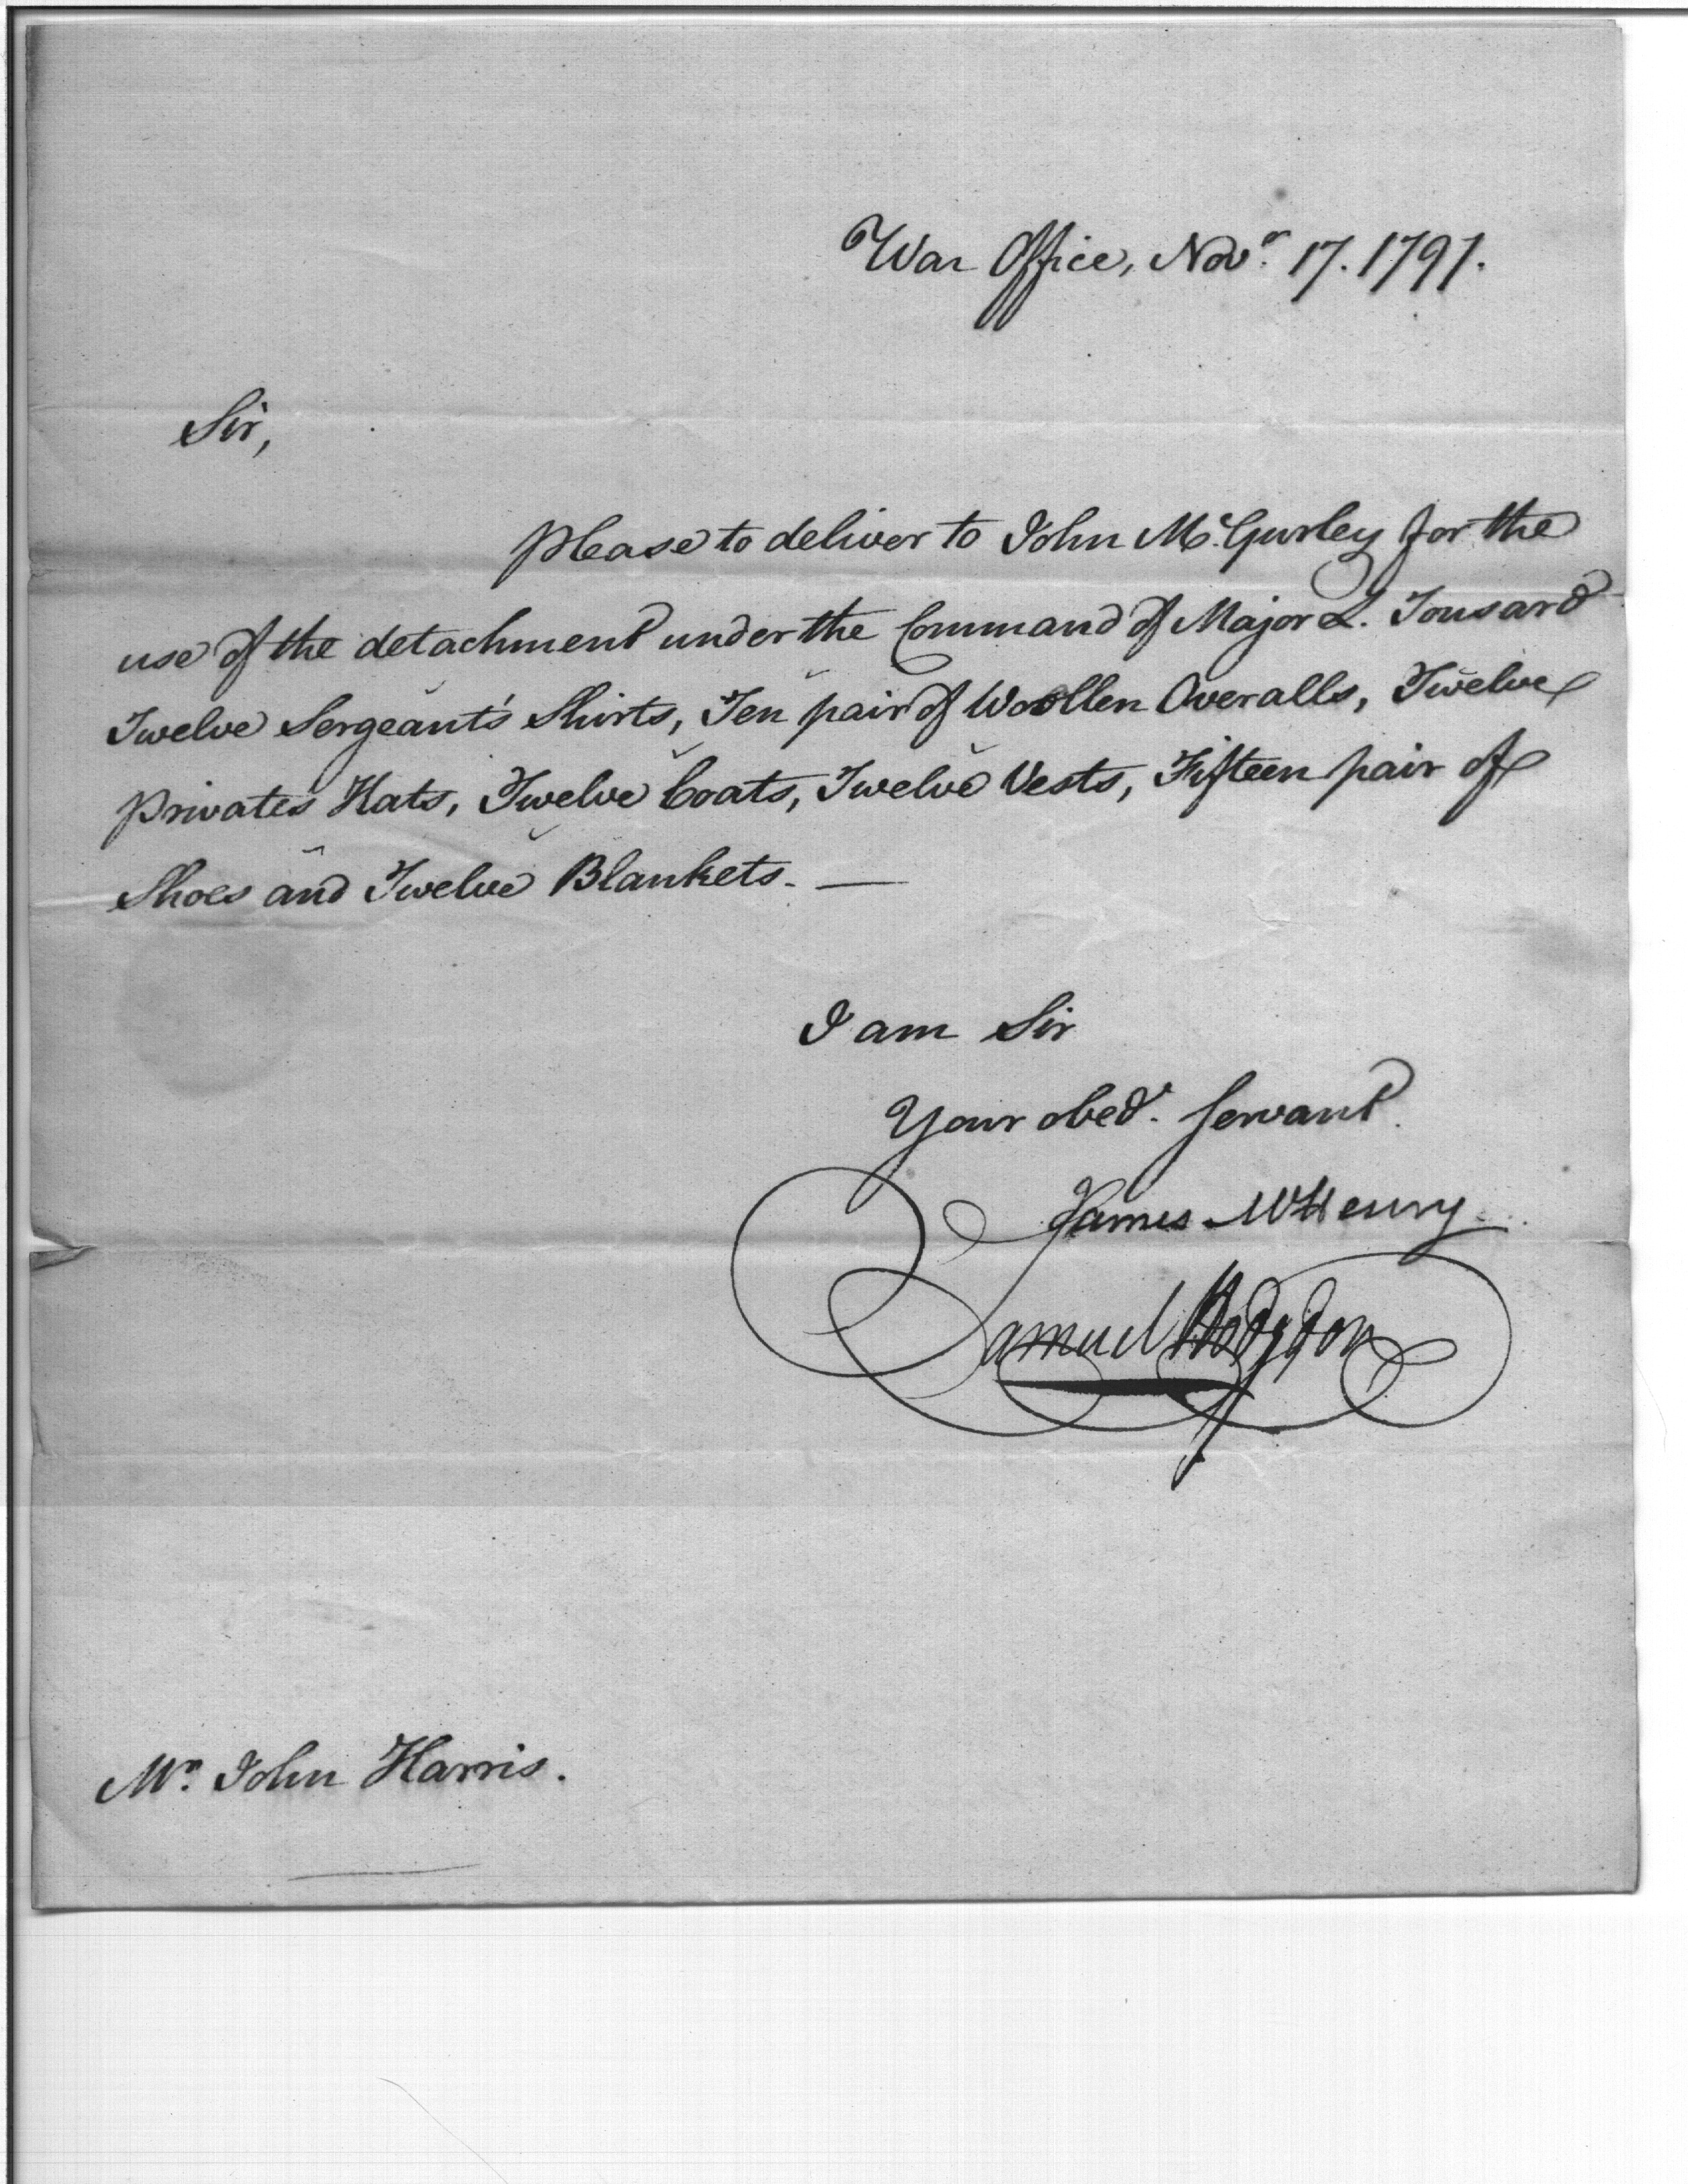 War Office, Novr. 17. 1797.
Sir,
Please to deliver to John McGurley for the
use of the detachment under the Command of Major L. Tousard
Twelve Sergeant's Shirts, Ten pair of Woollen Overalls, Twelve
Privates Hats, Twelve Coats, Twelve Vests, Fifteen pair of
Shoes and Twelve Blankets. —
I am Sir
Your obedt. Servant.
James McHenry
Samuel Hodgdon
Mr. John Harris.